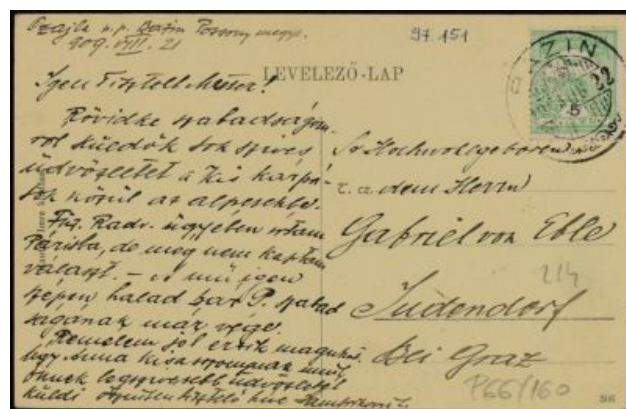 Szajla u.p. Bazin Pozsony megye.
909. VIII. 21
97.151
BAZIN
22
5
LEVELEZŐ-LAP
Igen Tisztelt Mester!
Rövidke szabadságom-
ról küldök sok szives
üdvözletet a Kis Kárpá-
tok közül az alpesekbe.
ügyében irtam
Párisba, de még nem kaptam
választ. – a mű igen
szépen halad bár P. szabad
ságának már vége.
Remélem jól érzik magukat
úgy Anna kisasszonynak mint
önnek legszivesebb üdvözletét
küldi őszintén tisztelő hive
Sr Hochwohlgeboren
T. cz. dem Herrn
Gabriel von Eble
214
Judendorf
bei Graz
P66/160